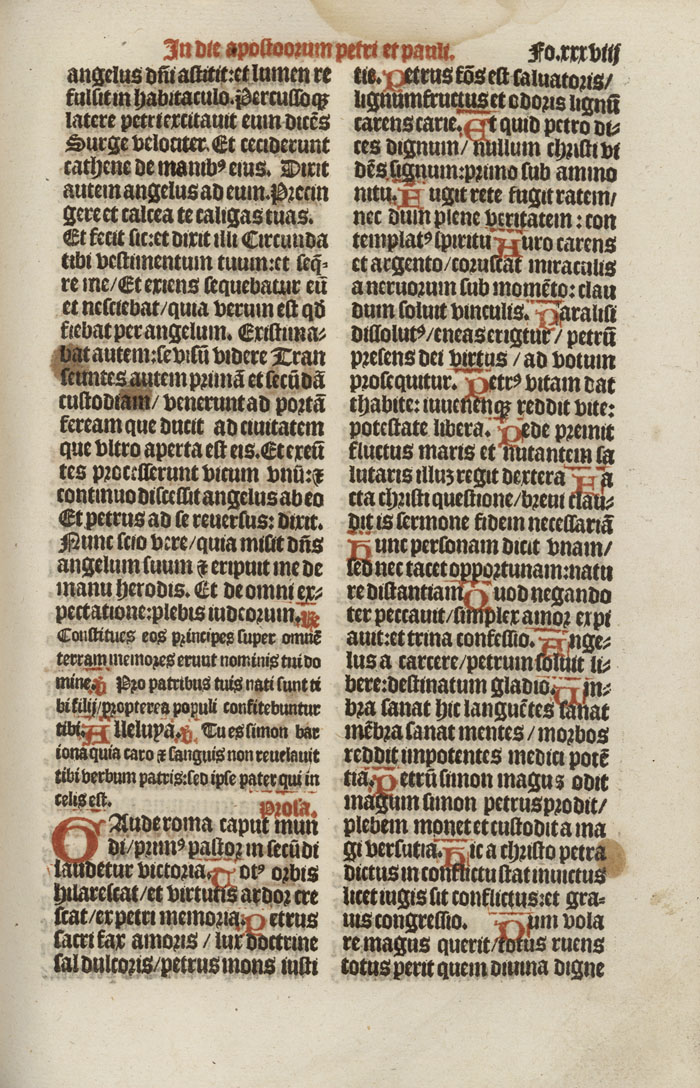 In die apostoorum petri et pauli. Fo.xxxviij
angelus dñi astitit:et lumen re
fulsit in habitaculo.Percussoqꝫ
latere petri excitauit eum dicẽs
Surge velociter. Et ceciderunt
cathene de manibꝰ eius. Dixit
autem angelus ad eum.Precin
gere et calcea te caligas tuas.
Et fecit sic:et dixit illi Circunda
tibi vestimentum tuum:et seq̃⸗
re me/Et exiens sequebatur eũ
et nesciebat/quia verum est qđ
fiebat per angelum. Existima⸗
bat autem:se visũ videre Tran
seuntes autem primã et secũdã
custodiam/ venerunt ad portã
ferream que ducit ad ciuitatem
que vltro aperta est eis.Et exeũ
tes processerunt vicum vnũ:⁊
continuo discessit angelus ab eo
Et petrus ad se reuersus: dixit.
Nunc scio vere/quia misit dñs
angelum suum ⁊ eripuit me de
manu herodis. Et de omni ex⸗
pectatione:plebis iudeorum.
Constitues eos principes super omnẽ
terram memores erunt nominis tui do
mine. Pro patribus tuis nati sunt ti
bi filij/propterea populi confitebuntur
tibi.Alleluya. Tu es simon bar
iona quia caro ⁊ sanguis non reuelauit
tibi verbum patris:sed ipse pater qui in
celis est. Prosa.
GAude roma caput mun
di/primꝰ pastor in secũdi
laudetur victoria.Totꝰ orbis
hilarescat/et virtutis ardor cre
scat/ex petri memoria.Petrus
sacri fax amoris / lux doctrine
sal dulcoris/petrus mons iusti
cie.Petrus fõs est saluatoris/
lignum fructus et odoris lignũ
carens carie.Et quid petro di⸗
ces dignum/ nullum christi vi
dẽs signum:primo sub ammo
nitu.Fugit rete fugit ratem/
nec dum plene veritatem : con
templatꝰ spiritu Auro carens
et argento/coruscat miraculis
a neruorum sub momẽto: clau
dum soluit vinculis. Paralisi
dissolutꝰ/eneas erigtur/ petrũ
presens dei virtus / ad votum
prosequitur. Petrꝰ vitam dat
thabite: iuuenenqꝫ reddit vite:
potestate libera. Pede premit
fluctus maris et nutantem sa
lutaris illuꝫ regit dextera Fa
cta christi questione/breui clau⸗
dit is sermone fidem necessariã
Hunc personam dicit vnam/
sed nec tacet opportunam:natu
re distantiam Quod negando
ter peccauit/simplex amor expi
auit:et trina confessio. Ange⸗
lus a carcere/petrum soluit li⸗
bere:destinatum gladio.Um⸗
bra sanat hic languẽtes sanat
mẽbra sanat mentes / morbos
reddit impotentes medici potẽ
tia.Petrũ simon magus odit
magum simon petrus prodit/
plebem monet et custodit a ma
gi versutia.Hic a christo petra
dictus in conflictu stat inuictus
licet iugis sit conflictus:et gra⸗
uis congressio. Dum vola
re magus querit/totus ruens
totus perit quem diuina digne